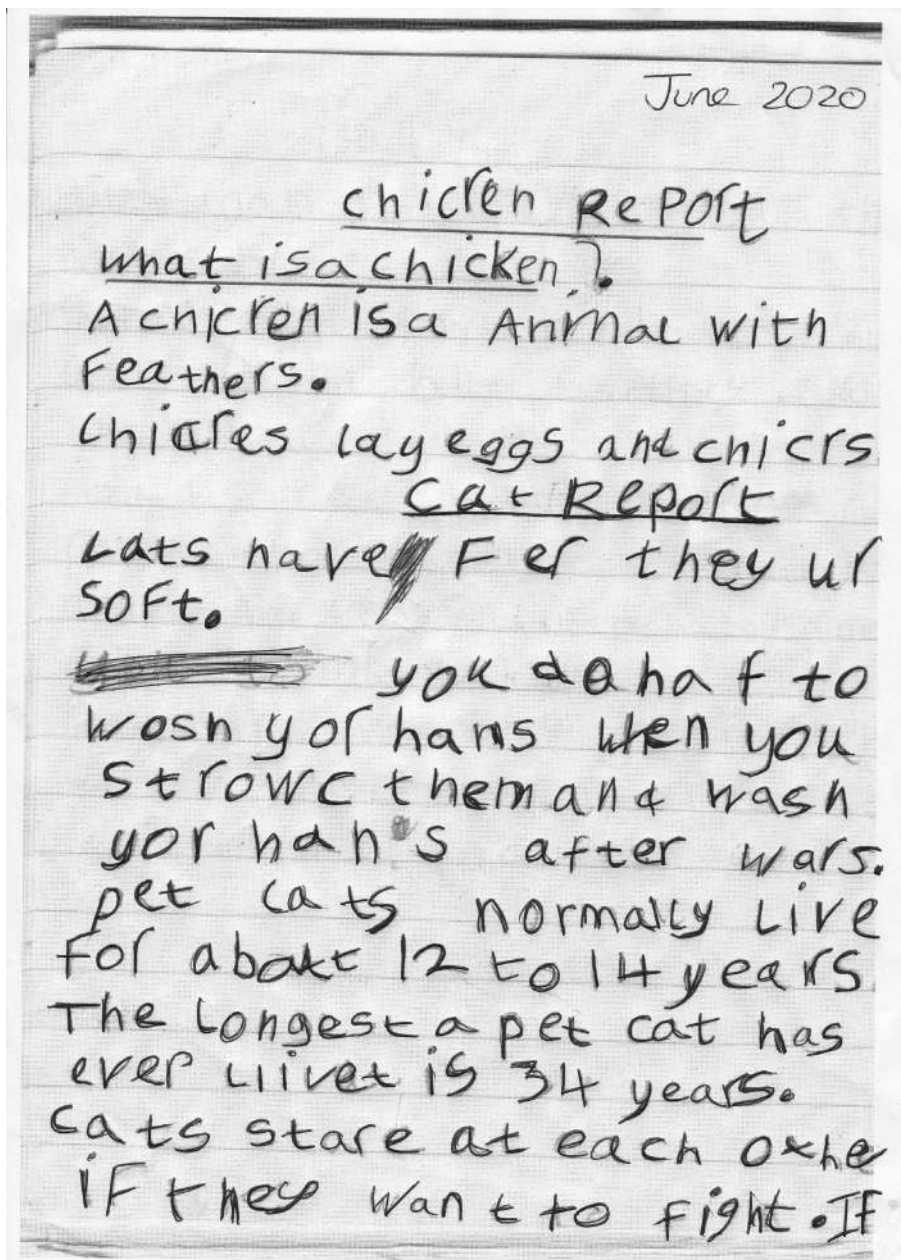 June 2020
chicren RePort
what is a chicken?
A chicren is a Anmal with
Feathers.
chicres lay eggs and chicrs
Cat Report
Cats have Fer they ur
SoFt.
you do haf to
wosh yor hans when you
strowc them and wash
yor han's after wars.
pet cats normally Live
for abokt 12 to 14 years
The Longest a pet cat has
ever Liivet is 34 years.
Cats stare at each othe
iF they want to fight. IF